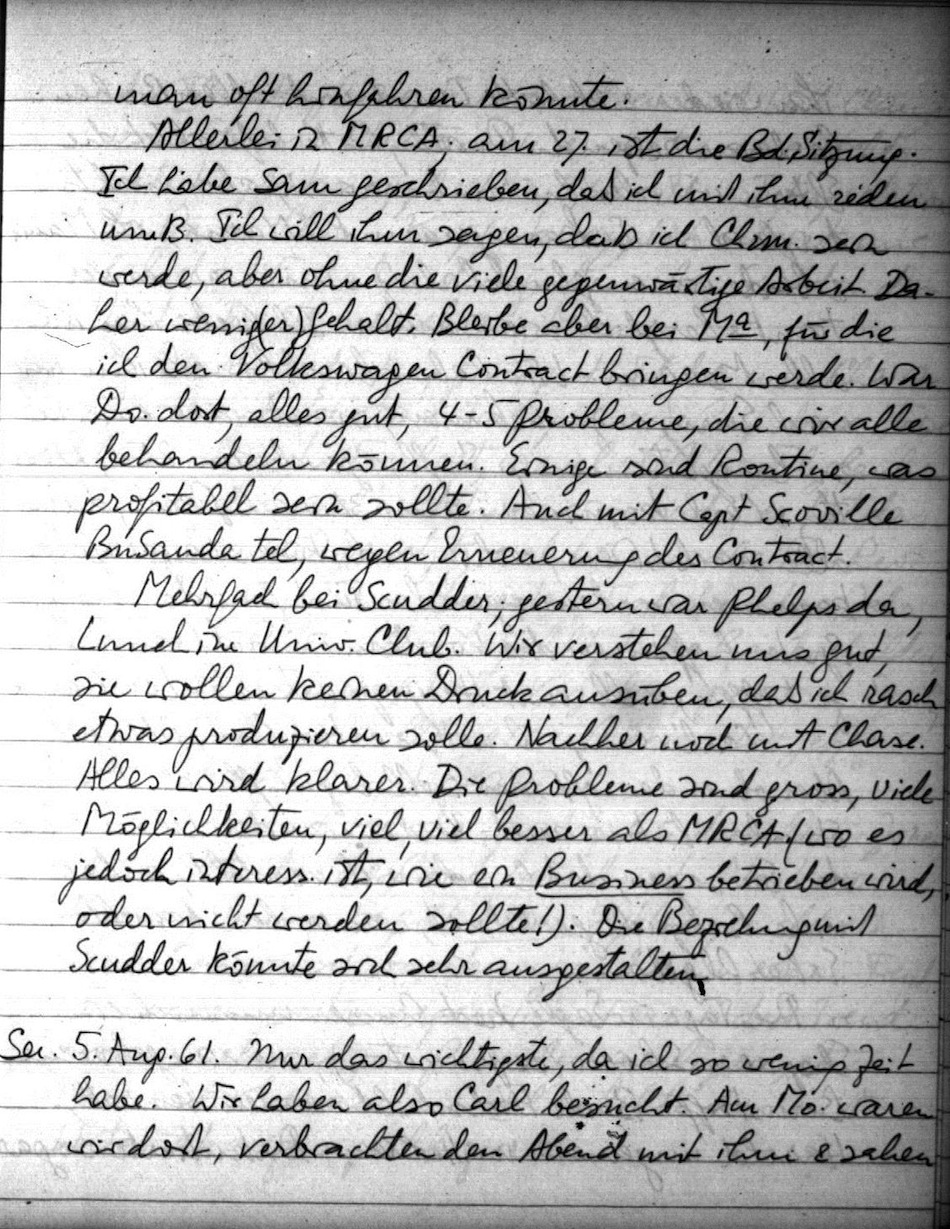 man oft hinfahren könnte.
Allerlei in MRCA, am 27. ist die Bd.Sitzung.
Ich habe Sam geschrieben, daß ich mit ihm reden
muß. Ich will ihm sagen, daß ich Chm. sein
werde, aber ohne die viele gegenwärtige Arbeit. Da-
her wenig(er) Gehalt. Bleibe aber bei Ma, für die
ich den Volkswagen Contract bringen werde. War
Do. dort, alles gut, 4-5 Probleme, die wir alle
behandeln können. Einige sind Routine, was
profitabel sein sollte. Auch mit Capt Scoville
BuSanda tel, wegen Erneuerung des Contract.
Mehrfach bei Scudder; gestern war Phelps da,
Lunch im Univ. Club. Wir verstehen uns gut,
sie wollen keinen Druck ausüben, daß ich rasch
etwas produzieren solle. Nachher noch mit Chase.
Alles wird klarer. Die Probleme sind gross, viele
Möglichkeiten, viel, viel besser als MRCA (wo es
jedoch interess. ist, wie ein Business betrieben wird,
oder nicht werden sollte!). Die Beziehung mit
Scudder könnte sich sehr ausgestalten.
5. Aug. 61. Nur das wichtigste, da ich so wenig Zeit
habe. Wir haben also Carl besucht. Am Mo. waren
wir dort, verbrachten den Abend mit ihm & sahen